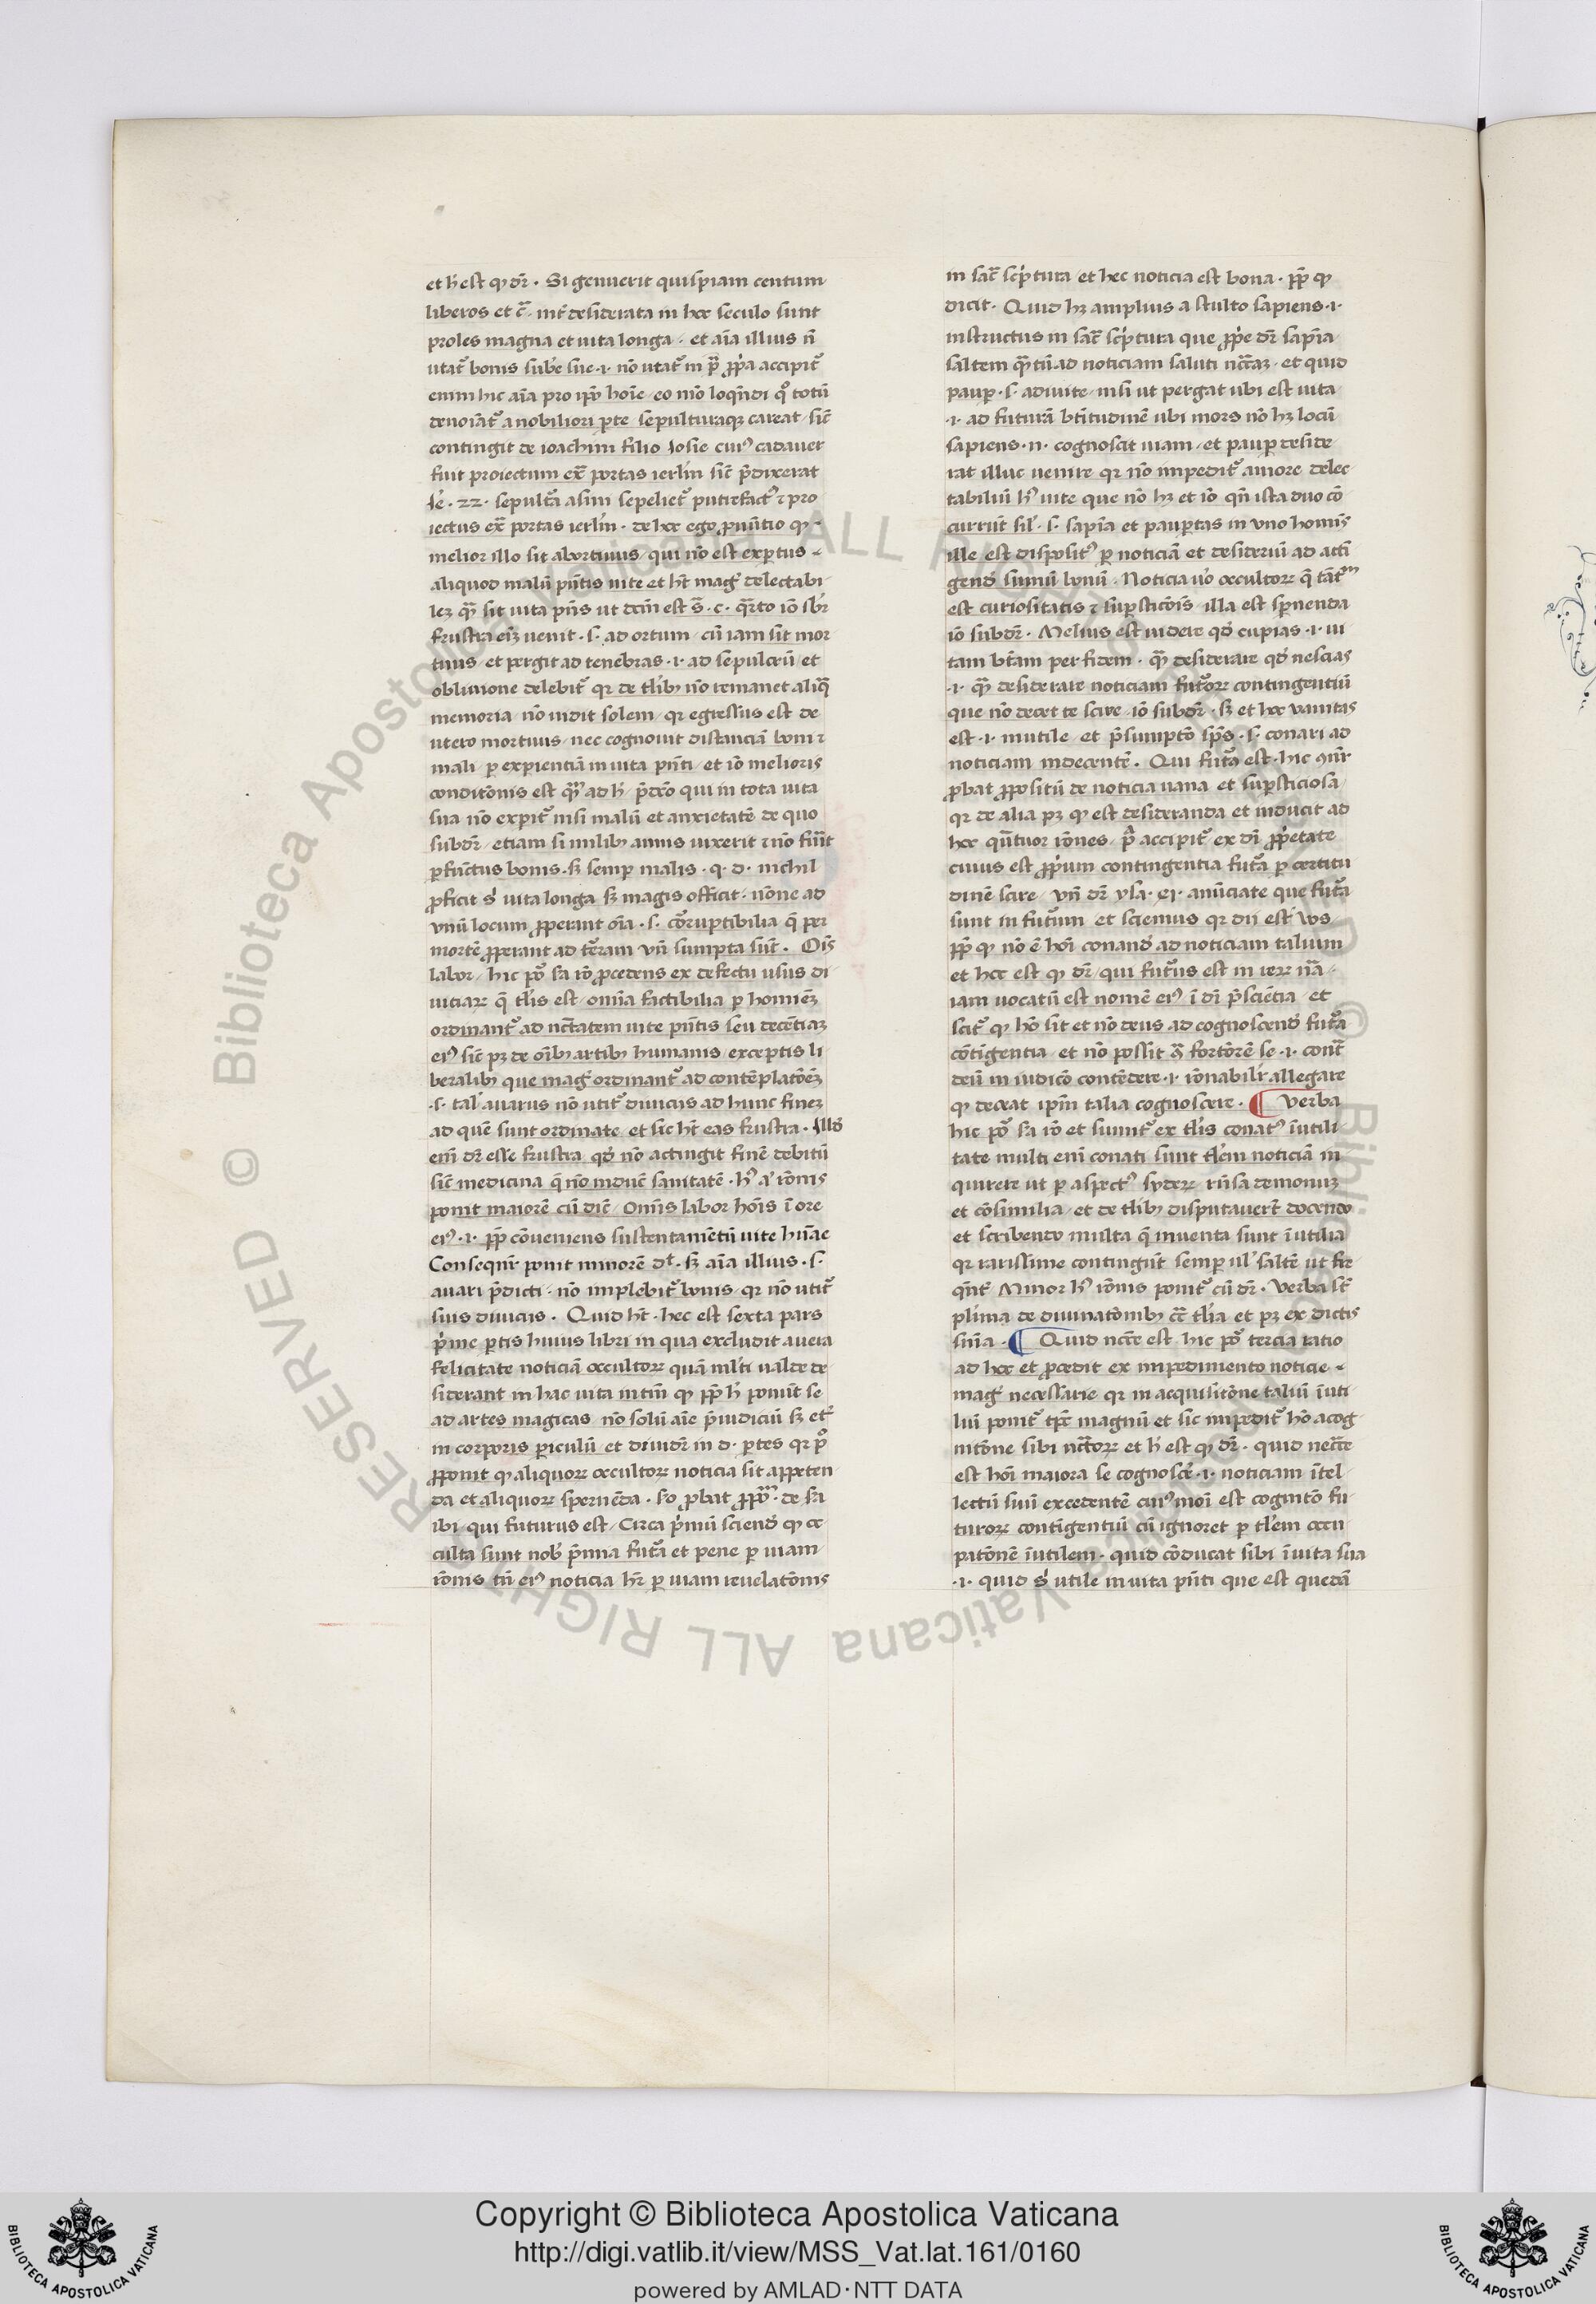 et h̄ est qͥ dr̄ · Si genuerit quispiam centum
liberos et c̄ · int̄ desiderata in hoc seculo sunt
proles magna et uita longa · et aīa illius n̄
utat᷑ bonis sube sue ·i· nō utat᷑ in accipit᷑
enim hic aīa pro ip̄o hoīe eo mō loqn̄di totū
a nobiliori p̄te sepulturaqꝫ careat sic̄
contingit de ioachim filio Iosie cuiꝰ cadauer
fuit proiectum ex̄ portas ierl̄m sic̄ p̄dixerat
Ie · 22 · sepult᷑a asini sepeliet᷑ putrefactꝰ ⁊ pro
iectus ex̄ portas ierl̄m · de hoc ego p̄nūtio qͥ
melior illo sit abortiuus qui nō est exp̄tus
aliquod malū pn̄tis uite et ht̄ mag̕ delectabi
leꝫ sit uita pn̄s ut dcm̄ est s̄ · c · q̄rto iō sb̄r
frustra eīꝫ uenit ·s· ad ortum cū iam sit mor
tuus et pergit ad tenebras ·i· ad sepulcrū et
obliuione delebit᷑ qr de tl̄ibꝫ nō remanet aliq̄
memoria nō uidit solem qr egressus est de
utero mortuus nec cognouit distanciā boni ⁊
mali p experientiā in uita pn̄ti et iō melioris
conditōnis est ad h̄ p̄dc̄o qui in tota uita
sua nō expit᷑ nisi malū et anxietatē de quo
subdr̄ etiam si milibꝫ annis uixerit ⁊ nō fūit
pfūctus bonis · sꝫ semp malis · q · d · nichil
p̄ficit uita longa sꝫ magis officit · nōne ad
vnū locum p̄perant oīa ·s· cōruptibilia q̄ per
mortē p̄perant ad t̄ram vn̄ sumpta sūt · Oīs
labor · hic pōͭ iō p̄cedens ex defectu usus di
uiciaꝝ q̄ tl̄is est omīa factibilia p homiēꝫ
ordinant᷑ ad nc̄tatem uite pn̄tis seu decētiaꝫ
eiꝰ sic̄ pꝫ de oībꝫ artibꝫ humanis exceptis li
beralibꝫ que mag̕ ordinant᷑ ad contēplatōēꝫ
·s· tal̕ auarus nō utit᷑ diuiciis ad hunc fineꝫ
ad quē sunt ordinate et sic ht̄ eas frustra · Illd̕
em̄ dr̄ esse frustra qd̕ nō actingit finē debitū
sic̄ medicina q̄ nō inducē sanitatē · hꝰ iōnis
ponit maiorē cū dic̄ Omīs labor hōis ī ore
eiꝰ ·i· pp̄ cōueniens sustentamētū uite hūae
Consequr̄ ponit minorē dt · sꝫ aīa illius ·s·
auari p̄dicti nō implebit᷑ bonis qr nō utit᷑
suis diuiciis · Quid ht̄ · hec est sexta pars
p̄me p̄tis huius libri in qua excludit a uera
felicitate noticiā occultoꝝ quā ml̄ti ualde de
siderant in hac uita intm̄ qͥ pp̄ h̄ ponūt se
ad artes magicas nō solū aīe p̄iudiciū sꝫ et᷑
in corporis piculū et diuidr̄ in d · p̄tes qr pͦ
p̄ponit qͥ aliquoꝝ occultoꝝ noticia sit appeten
da et aliquoꝝ spernēda · s̄o p̄bat ·
ibi qui futurus est Circa p̄mū sciend̕ qͥ oc
culta sunt nob̕ p̄uina fut᷑a et pene p uiam
iōnis tn̄ eiꝰ noticia hr̄ p uiam reuelatōnis
in sac̄ sc̄ptura et hec noticia est bona · pp̄ qͥ
dicit · Quid hꝫ amplius a stulto sapiens ·i·
instructus in sac̄ sc̄ptura que p̄pe dr̄ sapīa
saltem q̄ tū ad noticiam saluti nc̄aꝫ · et quid
paup ·s· adiuite nisi ut pergat ubi est uita
·i· ad futurā btītudinē ubi mors nō hꝫ locū
sapiens ·n· cognoscit uiam et paup deside
rat illuc uenire qr nō impedit᷑ amore delec
tabiliū hꝰ uite que nō hꝫ et iō qn̄ ista duo cō
currūt sil̕ ·s· sapīa et paup̄tas in vno homīs
ille est dispositꝰ p noticiā et desideriū ad acti
gend̕ sumū bonū · Noticia uo occultoꝝ q̄ tāt᷑m
est curiositatis ⁊ supsticōis illa est spnenda
iō subdr̄ · Melius est uidere qd̕ cupias ·i· ui
tam btam per fidem · desiderare qd̕ nescias
·i· desiderare noticiam fut᷑oꝝ contingentiū
que nō decet te scire iō subdr̄ · sꝫ et hoc vanitas
est ·i· inutile et p̄sumptō sp̄s ·s· conari ad
noticiam indecentē · Qui fut᷑a est · hic 9nr̄
p̄bat p̄positū de noticia uana et supsticiosa
qr de alia pꝫ qͥ est desideranda et inducit ad
hoc q̄tuor iōnes accipit᷑ ex dī p̄petate
cuius est p̄pium contingentia fut᷑a p certitu
dinē scire vn̄ dr̄ ysa · 41 · anūciate que fut᷑a
sunt in fut᷑um et sciemus qr dii est̕ uos
pp̄ qͥ nō ē hoī conand̕ ad noticiam talium
et hoc est qͥ dr̄ qui fut᷑us est in ierꝝ
iam uocatū est nomē eiꝰ ī dī p̄sciētia et
scit᷑ qͥ hō sit et nō deus ad cognoscend̕ fut᷑a
cōtigentia et nō possit fortōrē se ·i· cont᷑
deū in iudicō contēdere ·i· iōnabilr̄ allegare
qͥ deceat ip̄m talia cognoscere · ¶ verba
hic pōͭ iō et sumit᷑ ex tl̄is conatꝰ īutili
tate multi em̄ conati sunt tl̄em noticiā in
quirere ut p aspectꝰ sydeꝝ rn̄sa demonuꝫ
et cōsimilia et de tl̄ibꝫ disputauert̄ docendo
et scribendo multa q̄ inuenta sunt īutilia
qr rarissime contingūt semp ul̕ saltē ut fre
qn̄t᷑ Minor hꝰ iōnis ponit᷑ cū dr̄ · Verba st̄
pl̄ima de diuinatōnibꝫ cc̄ tl̄ia et pꝫ ex dictis
sn̄ia · ¶ Quid nc̄ce est hic pōͭ tercia ratio
ad hoc et p̄cedit ex impedimento noticie
mag̕ necessarie qr in acquisitōne taliū īuti
liū ponit᷑ tp̄s magnū et sic impedit᷑ hō a cog
nitōne sibi nc̄ioꝝ et h̄ est qͥ dr̄ · quid necc̄e
est hoī maiora se cognosce᷑ ·i· noticiam ītel
lectū suū excedentē cuiꝰmoī est cognitō fu
turoꝝ contigentiū cū ignoret p tl̄em occu
patōnē īutilem · quid cōducat sibi ī uita sua
·i· quid s̕ utile in uita pn̄ti que est quedā
© Biblioteca Apostolica Vaticana ALL RIGHTS RESERVED © Biblioteca Apostolica Vaticana ALL RIGHTS RESERVED
Copyright © Biblioteca Apostolica Vaticana
http://digi.vatlib.it/view/MSS_Vat.lat.161/0160
powered by AMLAD·NTT DATA
BIBLIOTECA APOSTOLICA VATICANA
BIBLIOTECA APOSTOLICA VATICANA